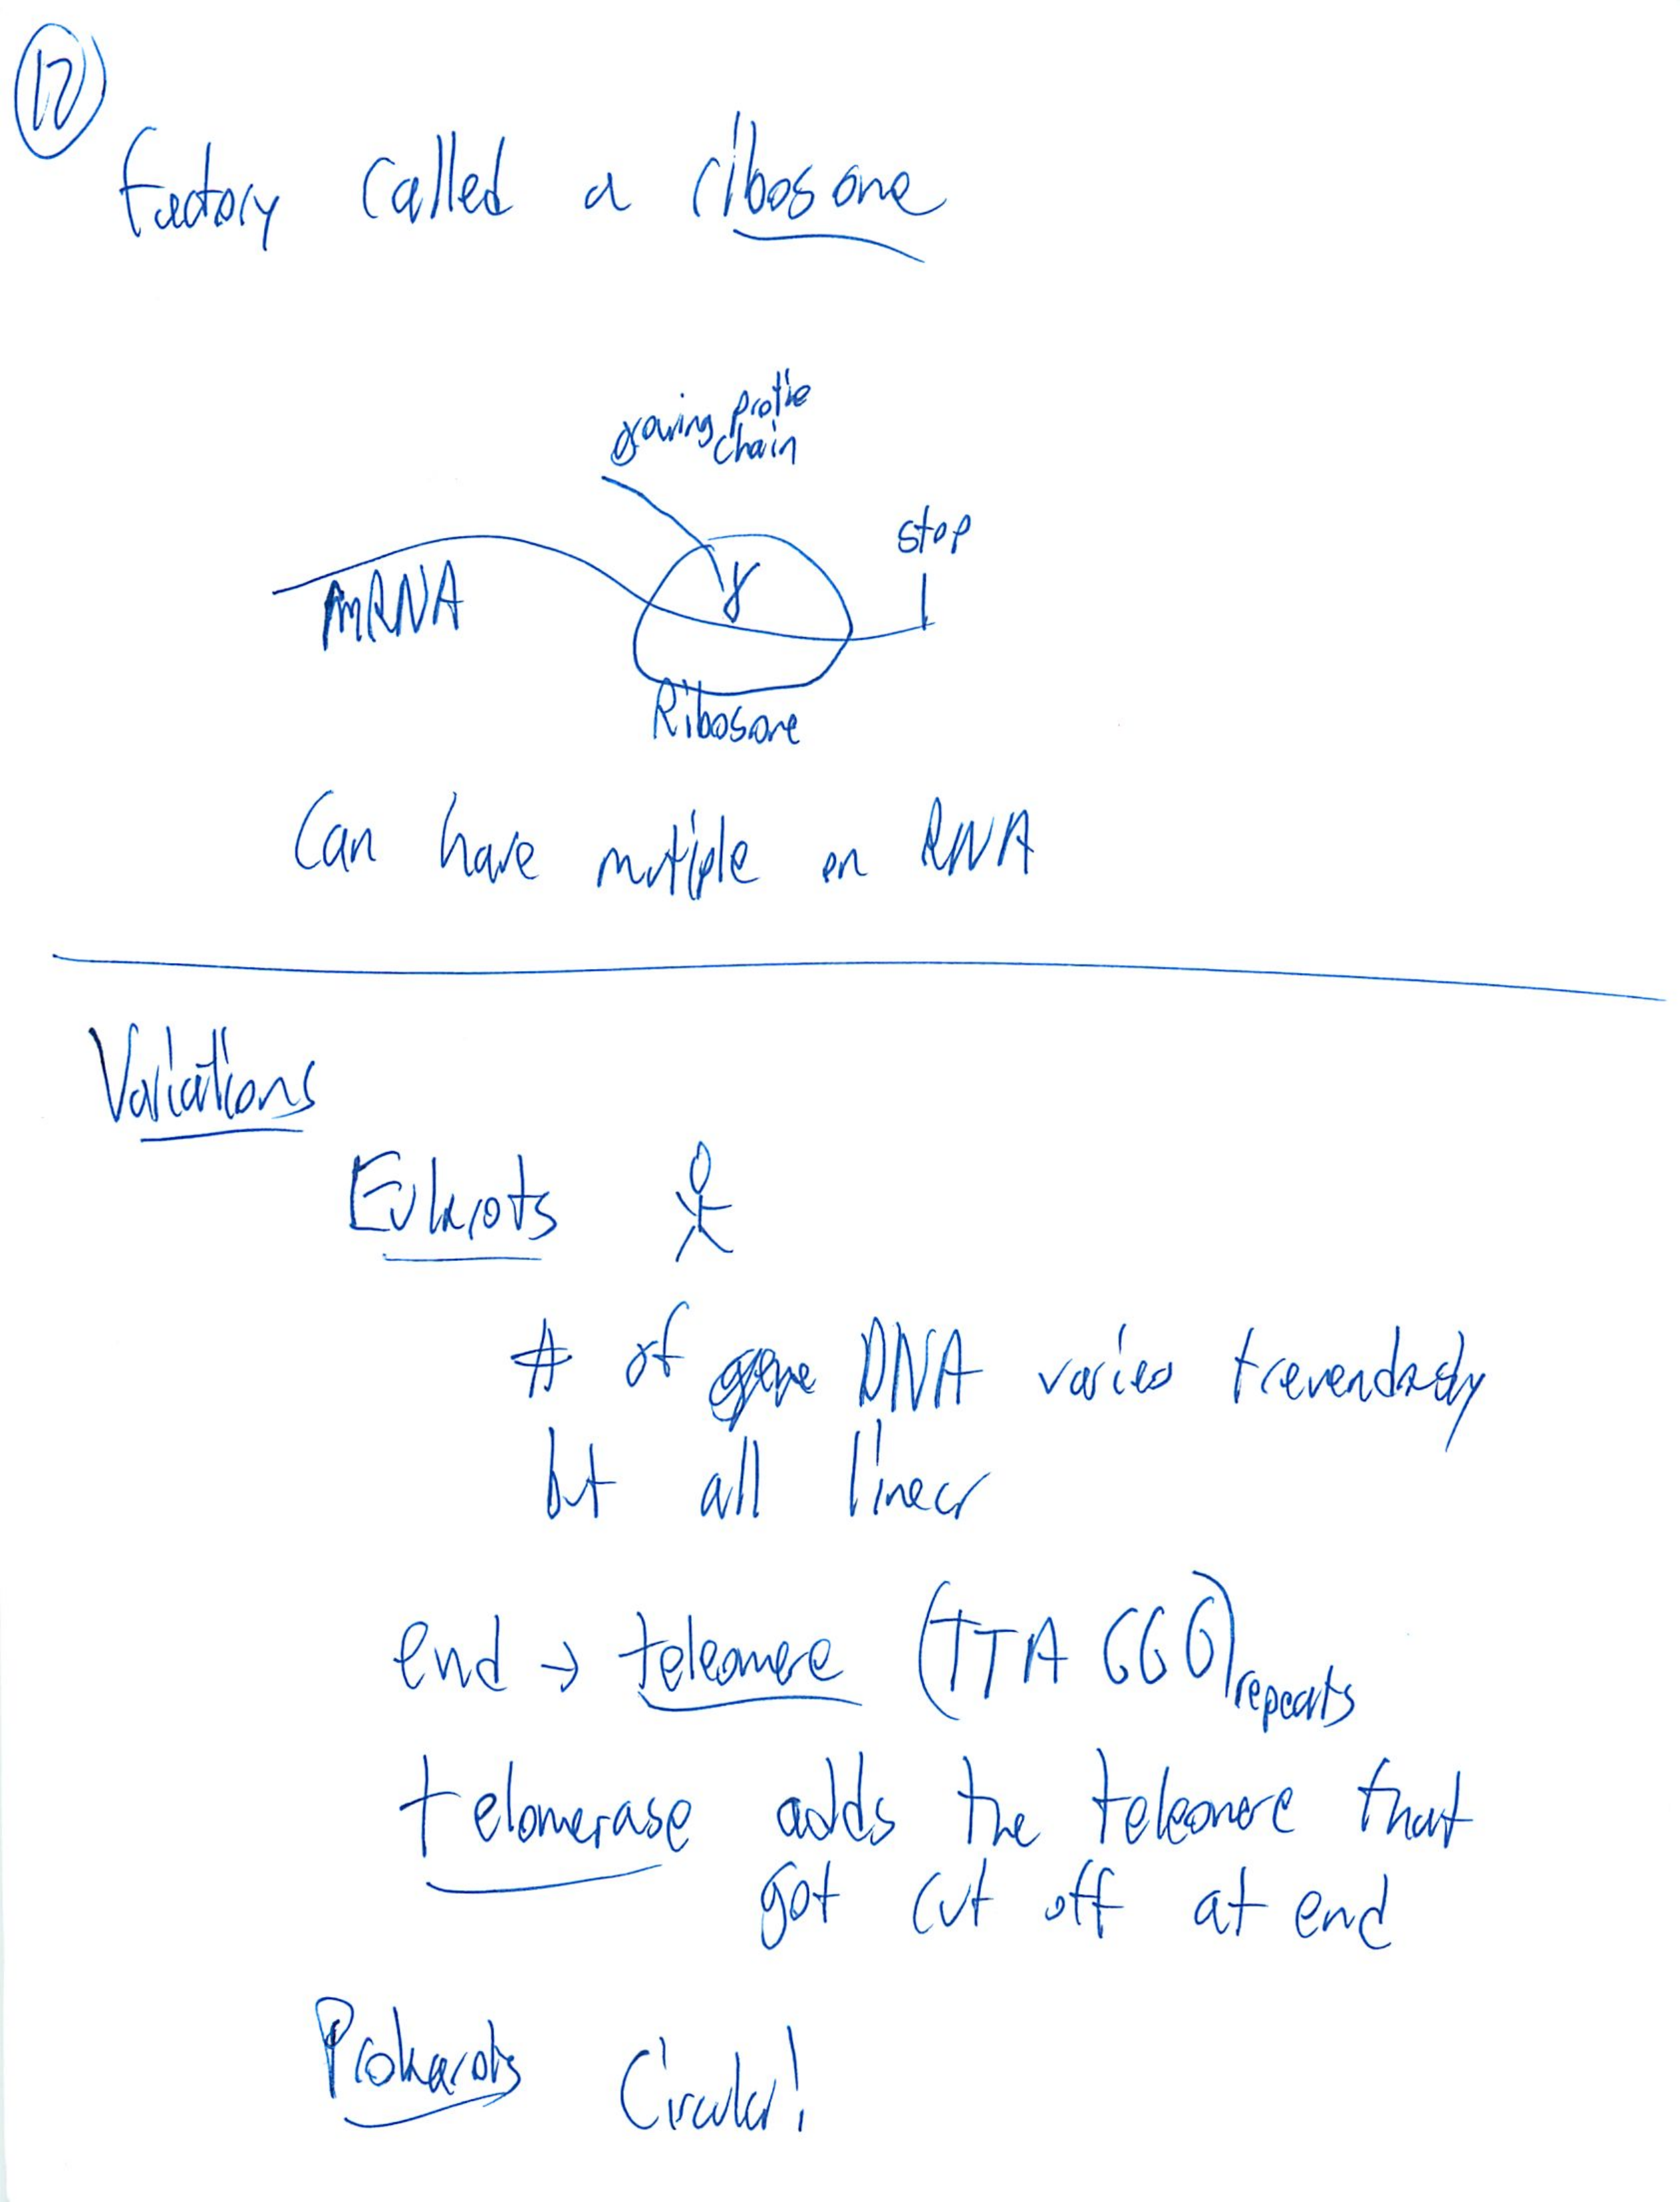 17
Factory called a ribosome
growing protie
chain
stop
mRNA
Ribosome
Can have mutiple on RNA
Variations
Eukarots
# of DNA varies tremendously
but all linear
end → teleomere (TTA GGG) repeats
telomerase adds the teleomere that
got cut off at end
Prokarots Circular!